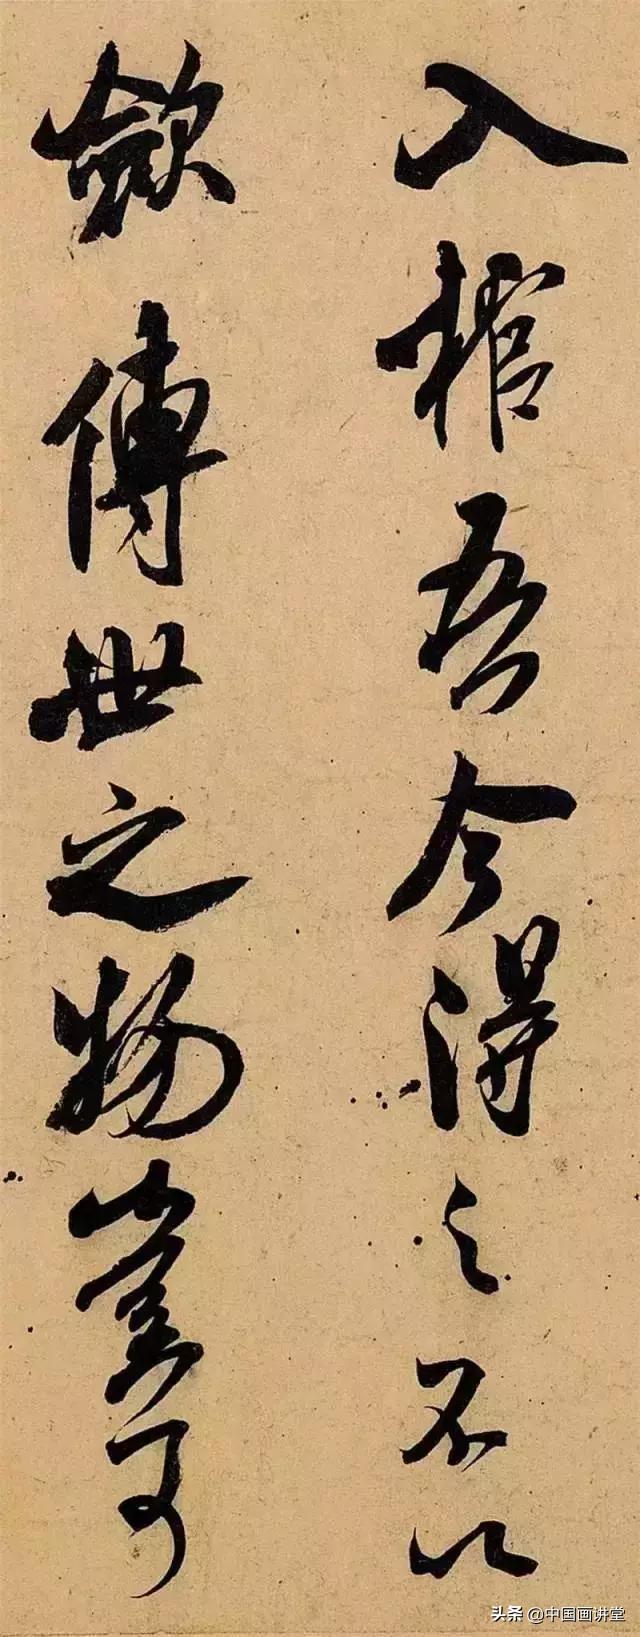 入棺吾今得之不以
歛傳世之物豈可
头条 @中国画讲堂